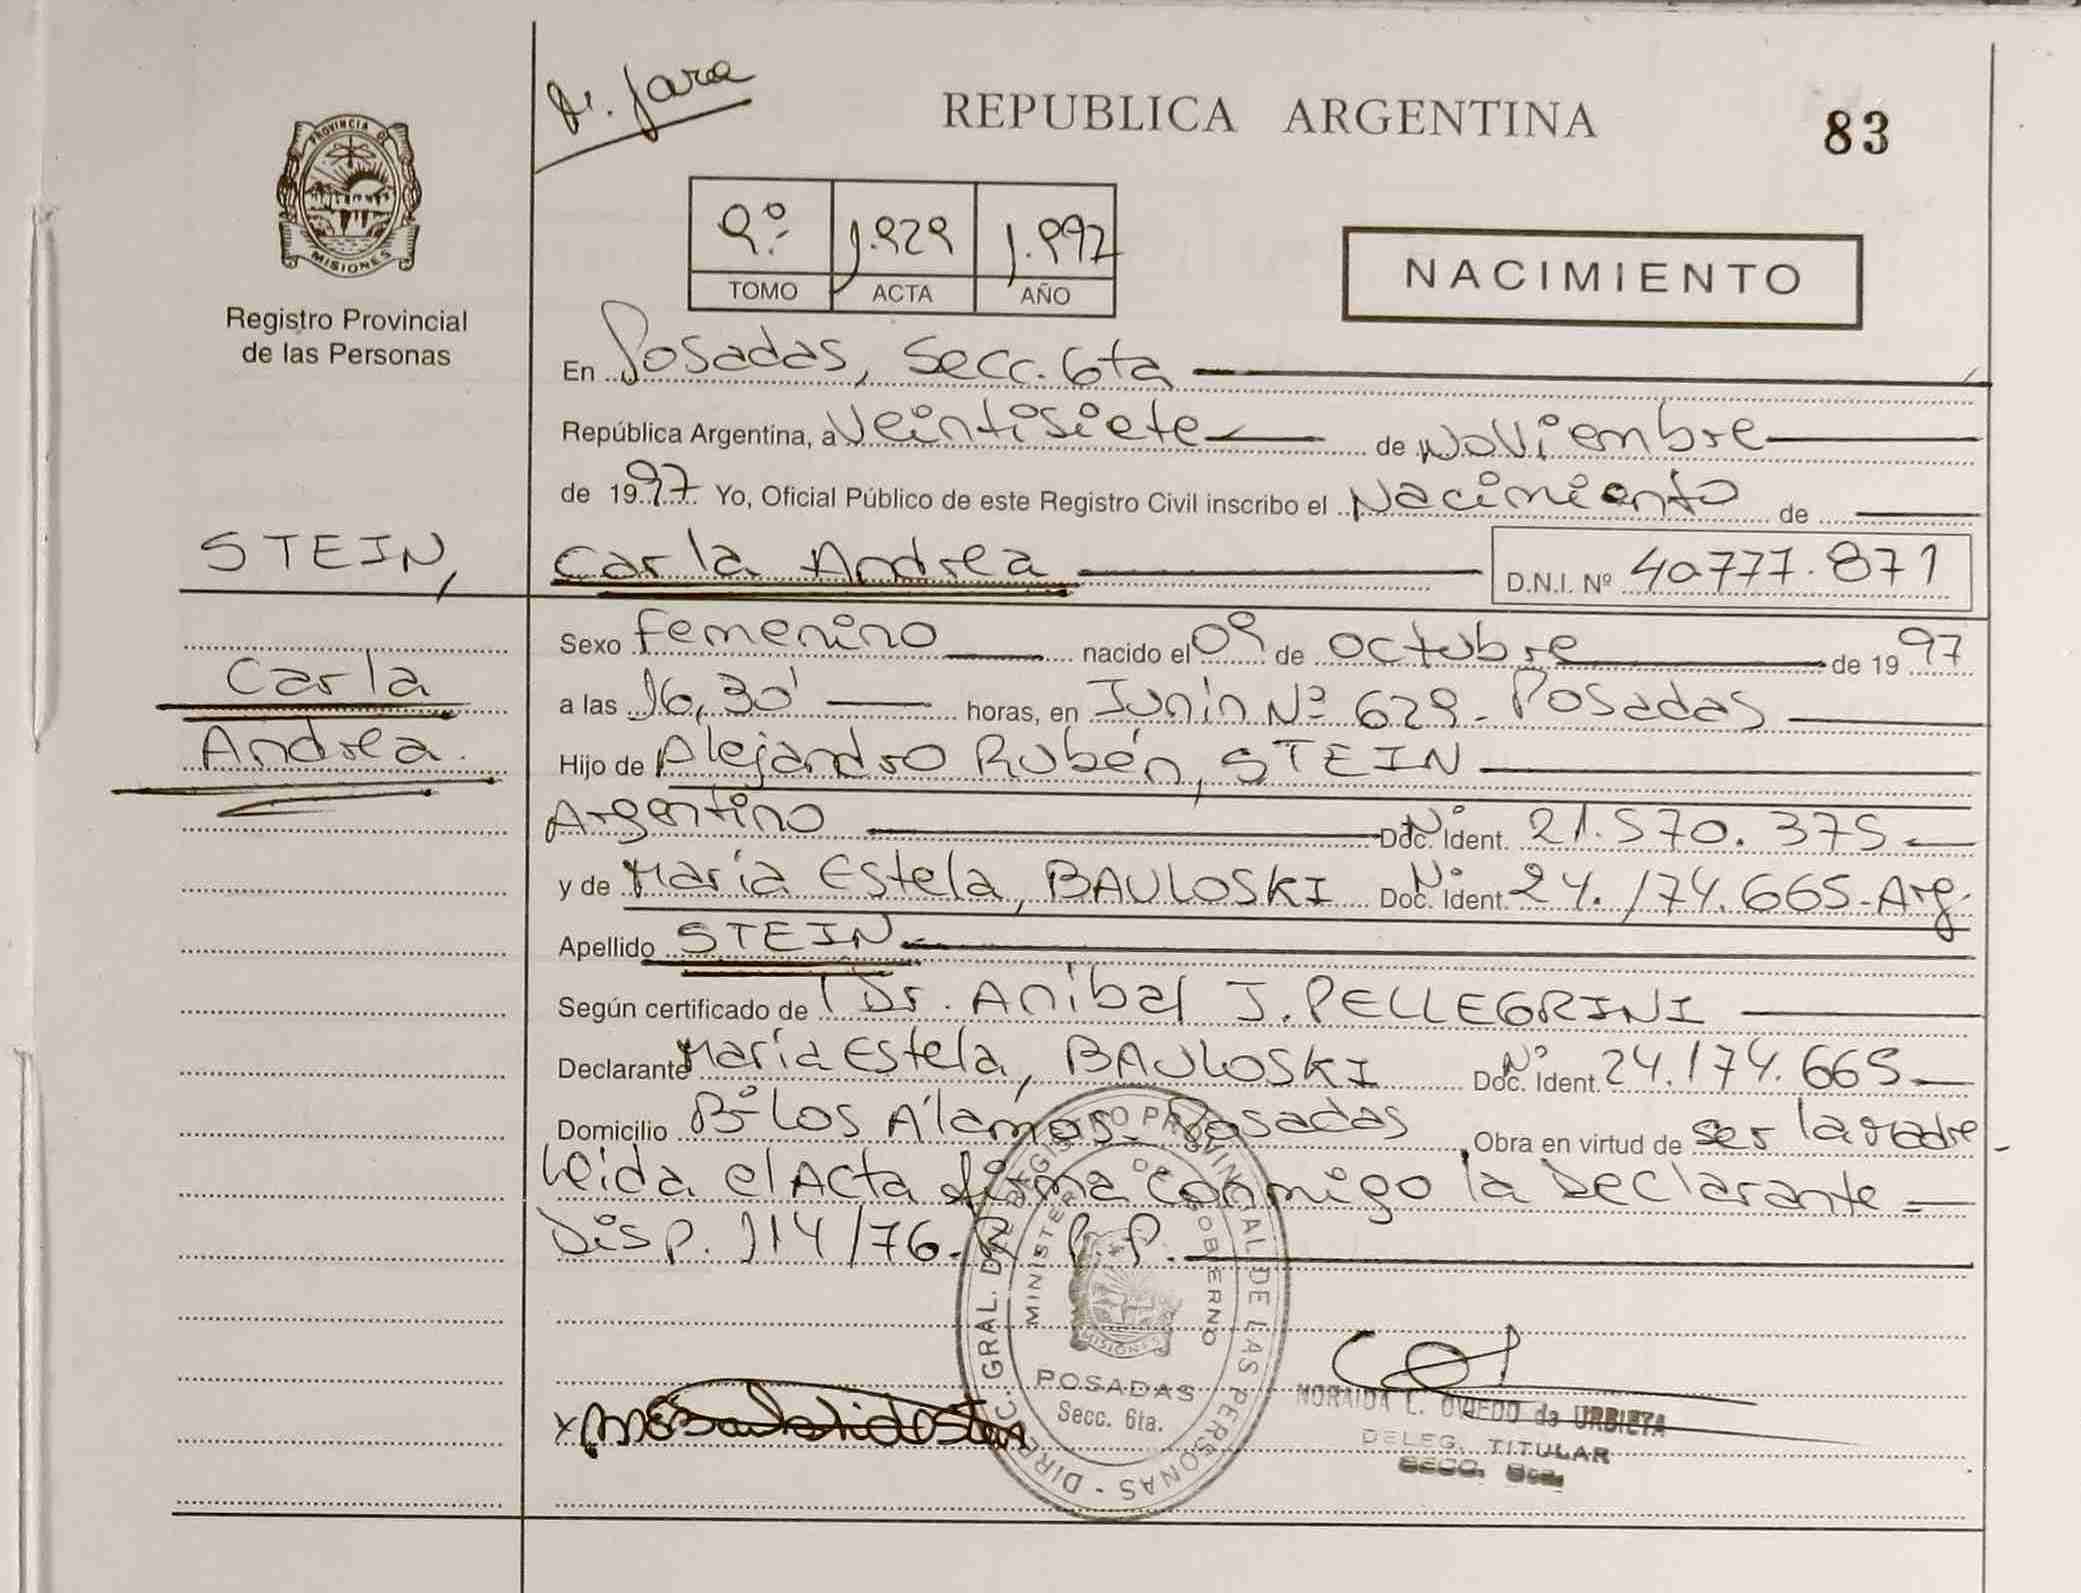 Dr. Jara
REPUBLICA ARGENTINA
83
PROVINCIA DE
MISIONES
Registro Provincial
de las Personas
9º 1.929 1.997
TOMO ACTA AÑO
NACIMIENTO
En Posadas, Secc. 6ta
República Argentina, a Veintisiete de Noviembre
de 1997 Yo, Oficial Público de este Registro Civil inscribo el Nacimiento de
STEIN, Carla Andrea D.N.I. Nº 40777.871
Sexo femenino nacido el 09 de octubre de 1997
Carla
a las 16,30' horas, en Junín Nº 629 - Posadas
Andrea.
Hijo de Alejandro Rubén, STEIN
Argentino Doc. Nº Ident. 21.570.375
y de María Estela, BAULOSKI Doc. Nº Ident. 24.174.665-Arg.
Apellido STEIN
Según certificado de Dr. Anibal J. PELLEGRINI
Declarante María Estela, BAULOSKI Doc. Nº Ident. 24.174.665
Domicilio Bº Los Álamos - Posadas, Obra en virtud de ser la madre -
Leida el Acta firma conmigo la Declarante =
Disp. 114/76-R. P. P.
DIRECC. GRAL. DE REGISTRO PROVINCIAL DE LAS PERSONAS
MINISTERIO DE GOBIERNO
MISIONES
POSADAS
Secc. 6ta.
NORAIDA L. OVIEDO de URBIETA
DELEG. TITULAR